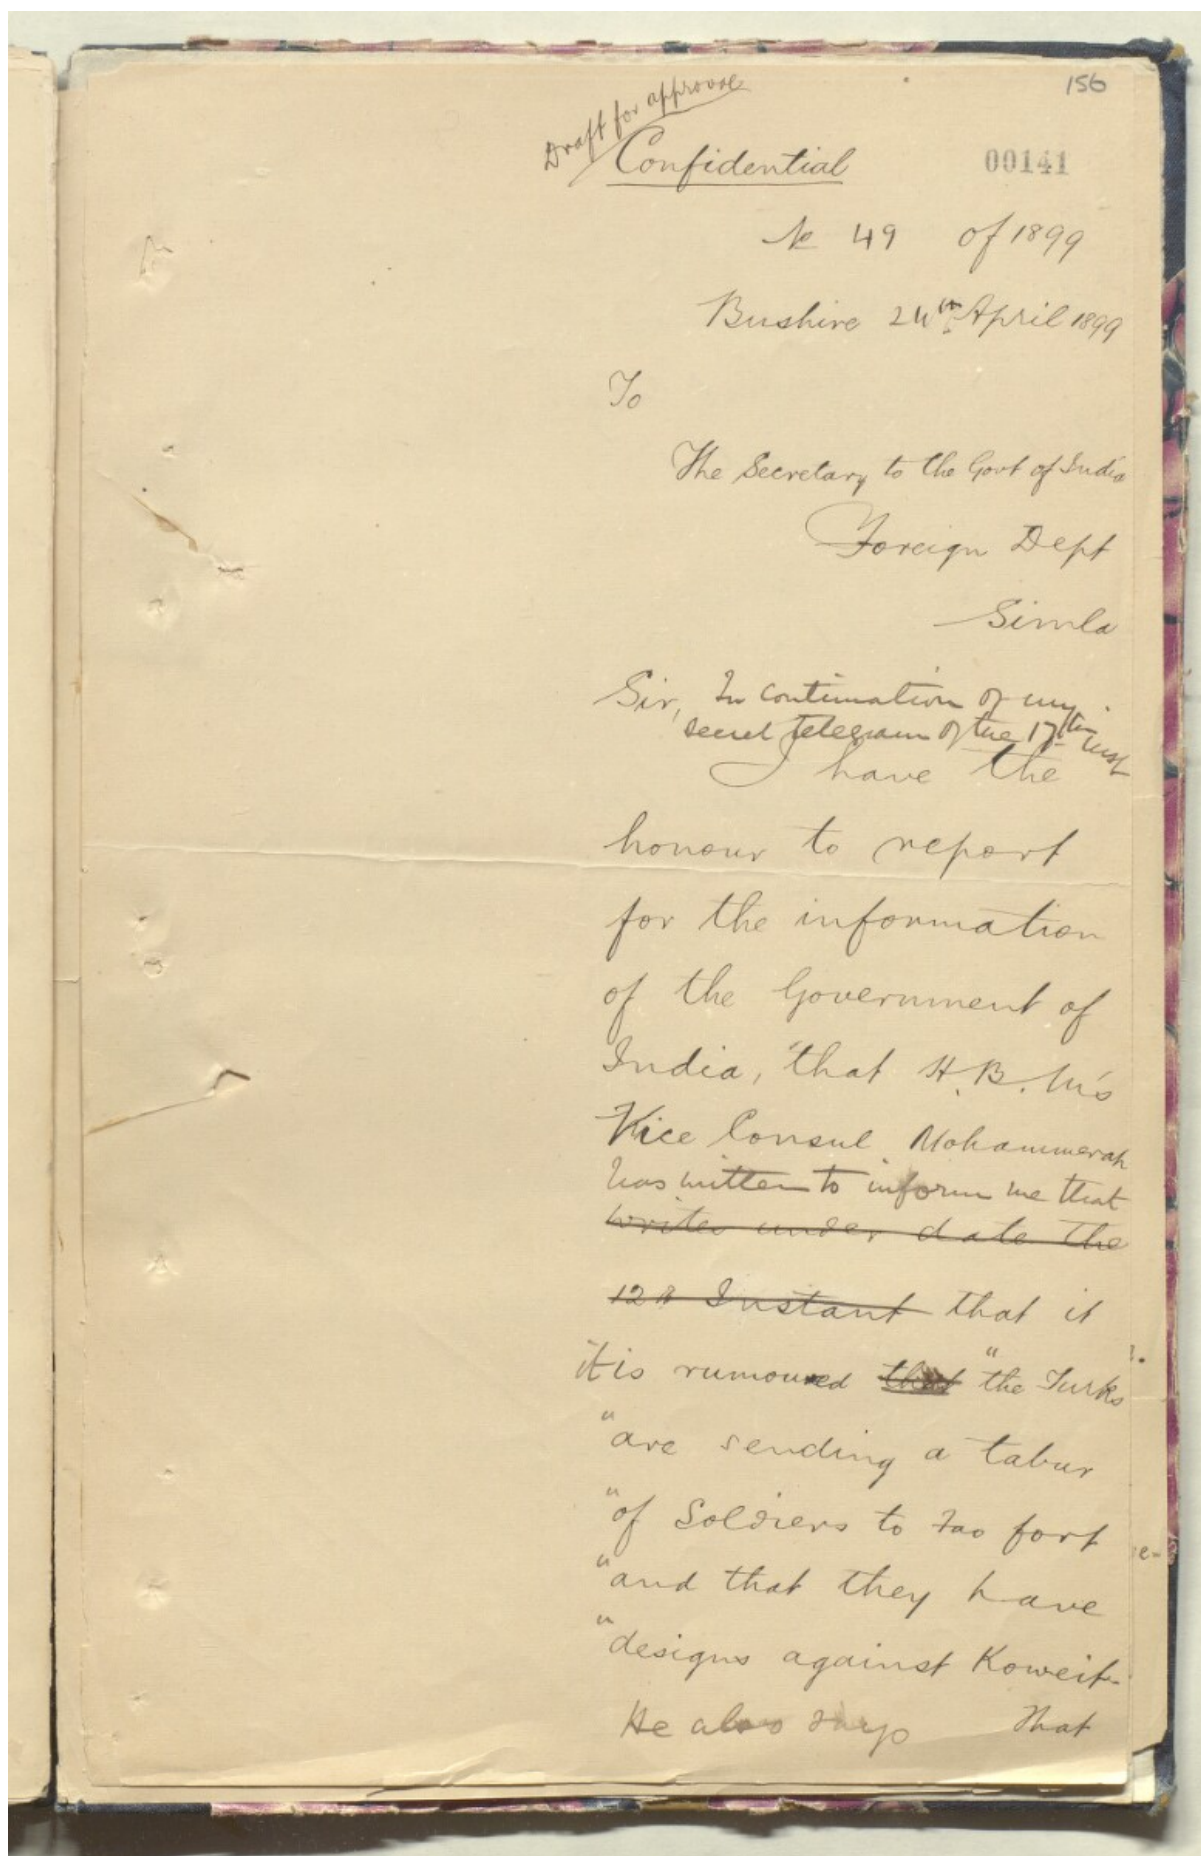 156
Draft for approval
Confidential
00141
No 49 of 1899
Bushire 24th April 1899
To
The Secretary to the Govt of India
Foreign Dept
Simla
Sir, In continuation of my
secret telegram of the 17th inst
I have the
honour to report
for the information
of the Government of
India, that H.B.M's
Vice Consul Mohammerah
has written to inform me that
writes under date the
12th Instant that it
it is rumoured that "the Turks
"are sending a tabur
"of Soldiers to Fao fort
"and that they have
"designs against Koweit-
He also says that